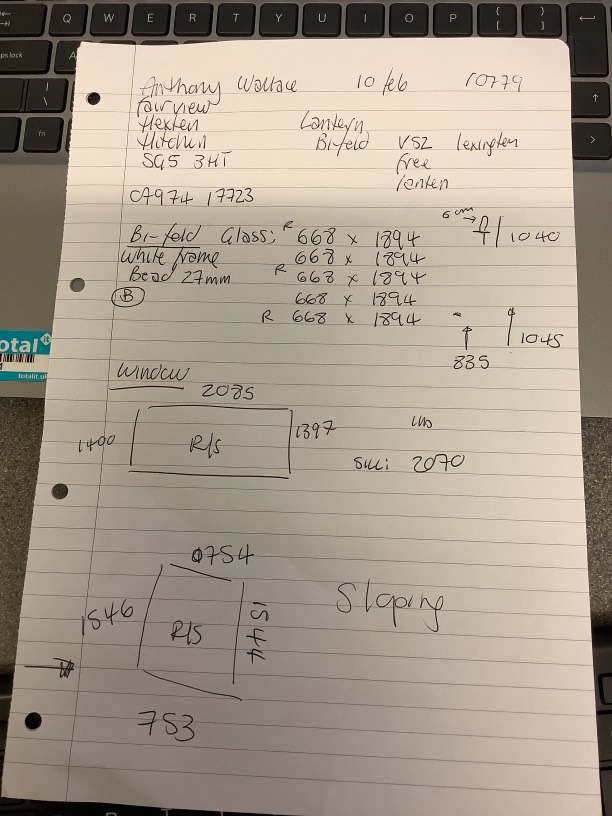 Anthony Wallace 10 feb 10779
Fairview
Hexten Lantern
Hitchin Bi-feld VS2 lexington
SG5 3HT free
lanten
07974 17723
Bi-feld Glass: R 668 x 1894 6cm → 1040
White frame 668 x 1894
Bead 27mm R 668 x 1894
B 668 x 1894
R 668 x 1894 1045
835
Window
2085
1400 R/S 1397
Sill: 2070
0754
1546 R/S 1544 Sloping
753
otal
totalit.u
Q W E R T Y U I O P { [ } ]
ps lock A
| \
fn